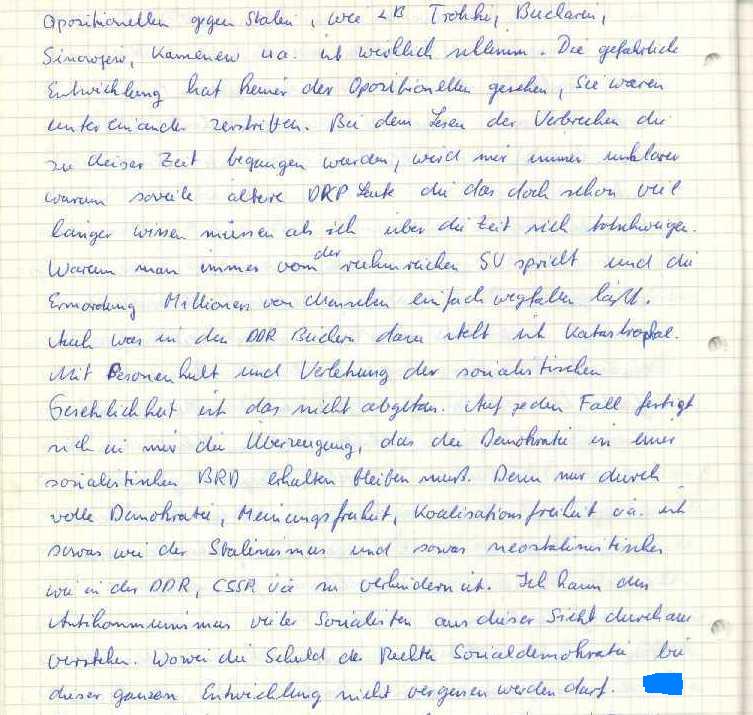 Opositionellen gegen Stalin, wie z.B. Trotzki, Bucharin,
Sinowjew, Kamenew u.a. ist wirklich schlimm. Die gefährliche
Entwicklung hat keiner der Opositionellen gesehen, Sie waren
untereinander zerstritten. Bei dem Lesen der Verbrechen die
zu dieser Zeit begangen wurden, wird mir immer unklarer
warum soviele ältere DKP Leute die das doch schon viel
länger wissen müssen als ich über die Zeit sich totschweigen.
Warum man immer von der ruhmreichen SU spricht und die
Ermordung Millionen von Menschen einfach wegfallen läßt.
Auch was in den DDR Büchern dazu steht ist Katastrophal.
Mit Personenkult und Verletzung der sozialistischen
Gesetzlichkeit ist das nicht abgetan. Auf jeden Fall festigt
sich in mir die Überzeugung, das die Demokratie in einer
sozialistischen BRD erhalten bleiben muß. Denn nur durch
volle Demokratie, Meinungsfreiheit, Koalisationsfreiheit u.a. ist
sowas wie der Stalinismus und sowas neostalinistisches
wie in der DDR, CSSR usw zu verhindern ist. Ich kann den
Antikommunismus vieler Sozialisten aus dieser Sicht durchaus
verstehen. Wobei die Schuld der Rechten Sozialdemokratie bei
dieser ganzen Entwicklung nicht vergessen werden darf.